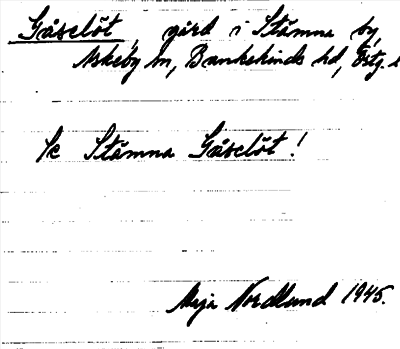 Gåselöt, gård i Stämna by,
Askeby sn, Bankekinds hd, Östg.
Se Stämna Gåselöt!
Maja Nordlund 1945.